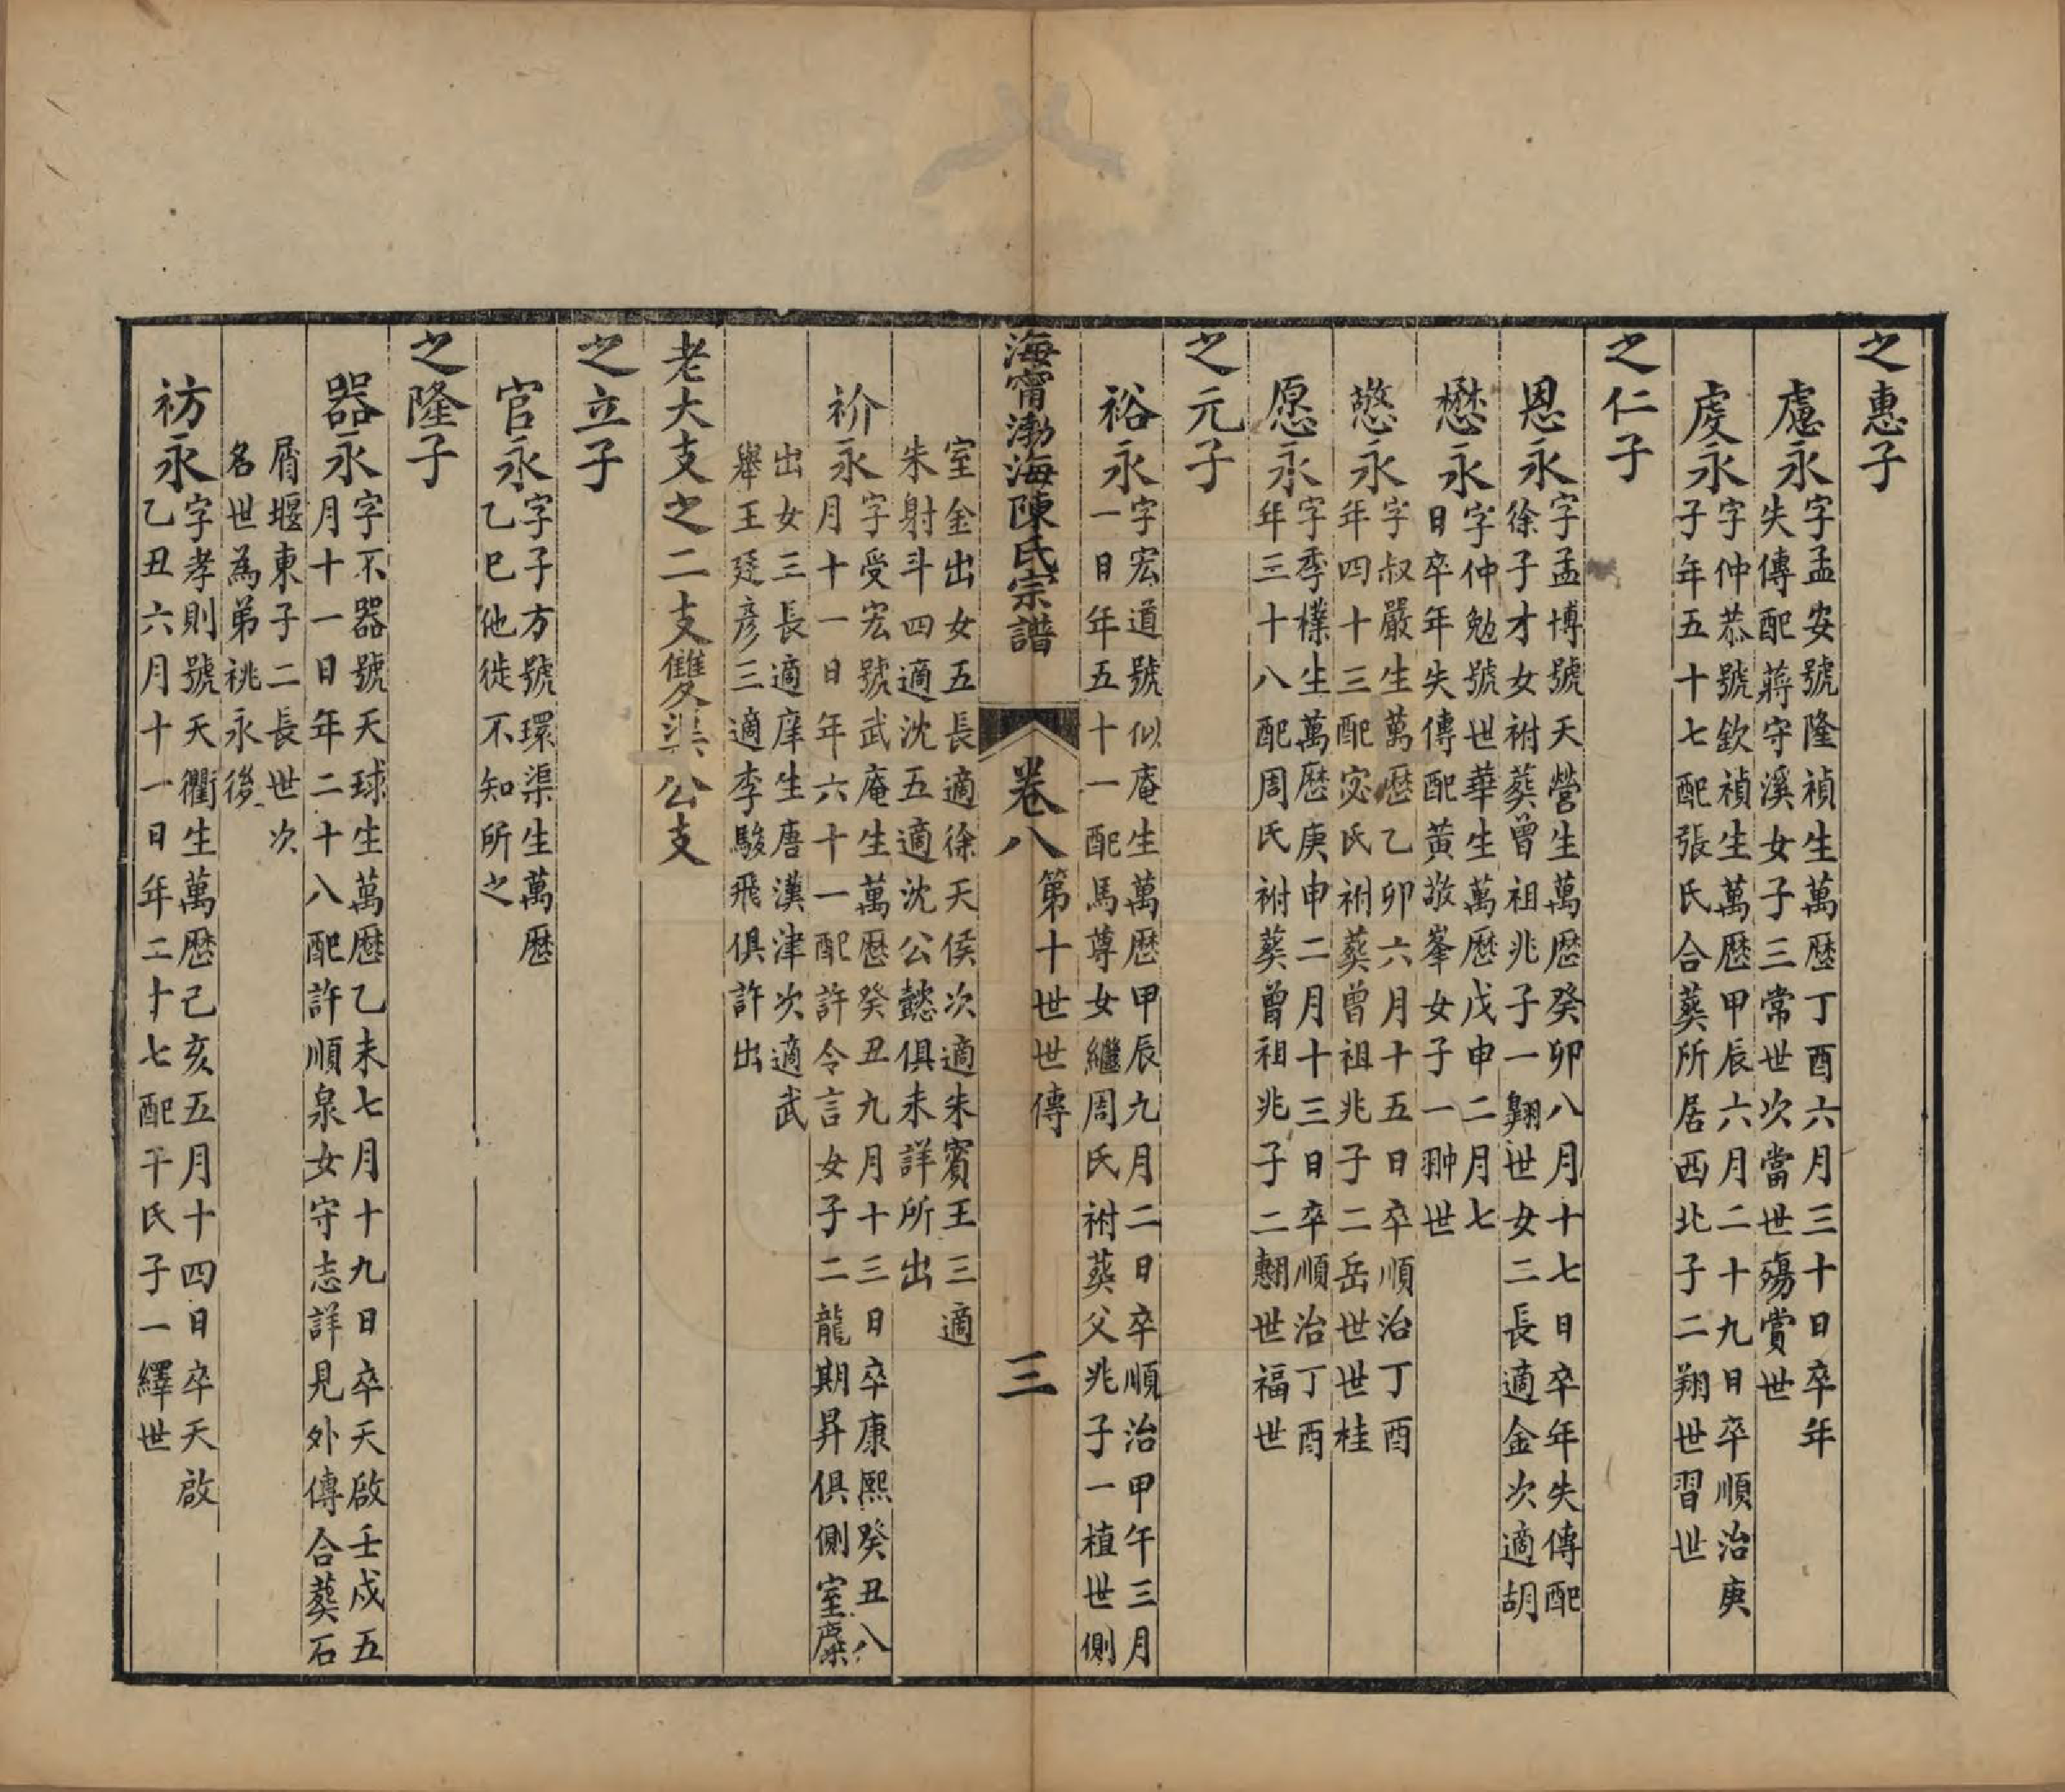 之惠子
慮永
字孟安號隆禎生萬歷丁酉六月三十日卒年
失傳配蔣守溪女子三常世次當世殤賞世
虔永
字仲恭號欽禎生萬歷甲辰六月二十九日卒順治庚
子年五十七配張氏合葬所居西北子二翔世習世
之仁子
恩永
字孟博號天營生萬歷癸卯八月十七日卒年失傳配
徐子才女祔葬曾祖兆子一翱世女二長適金次適胡
懋永
字仲勉號世華生萬歷戊申二月七
日卒年年失傳配黃敬峯女子一翀世
憼永
字叔嚴生萬歷乙卯六月十五日卒順治丁酉
年四十三配宓氏祔葬曾祖兆子二岳世世桂
愿永
字季樸生萬歷庚申二月十三日卒順治丁酉
年三十八配周氏祔葬曾祖兆子二翹世福世
之元子
裕永
字宏道號似庵生萬歷甲辰九月二日卒順治甲午三月
一日年五十一配馬尊女繼周氏祔葬父兆子一植世側
海甯渤海陳氏宗譜
卷八
第十世世傳
三
室金出女五長適徐天侯次適朱賓王三適
朱射斗四適沈五適沈公懿俱未詳所出
祄永
字受宏號武庵生萬歷癸丑九月十三日卒康熙癸丑八
月十一日年六十一配許令言女子二龍期昇俱側室糜
出女三長適庠生唐漢津次適武
舉王廷彥三適李駿飛俱許出
老大支之二支雙渠公支
之立子
官永
字子方號環渠生萬歷
乙巳他徙不知所之
之隆子
器永
字不器號天球生萬歷乙未七月十九日卒天啟壬戌五
月十一日年二十八配許順泉女守志詳見外傳合葬石
屑堰東子二長世次
名世為弟祧永後
祊永
字孝則號天衢生萬歷己亥五月十四日卒天啟
乙丑六月十一日年二十七配干氏子一繹世